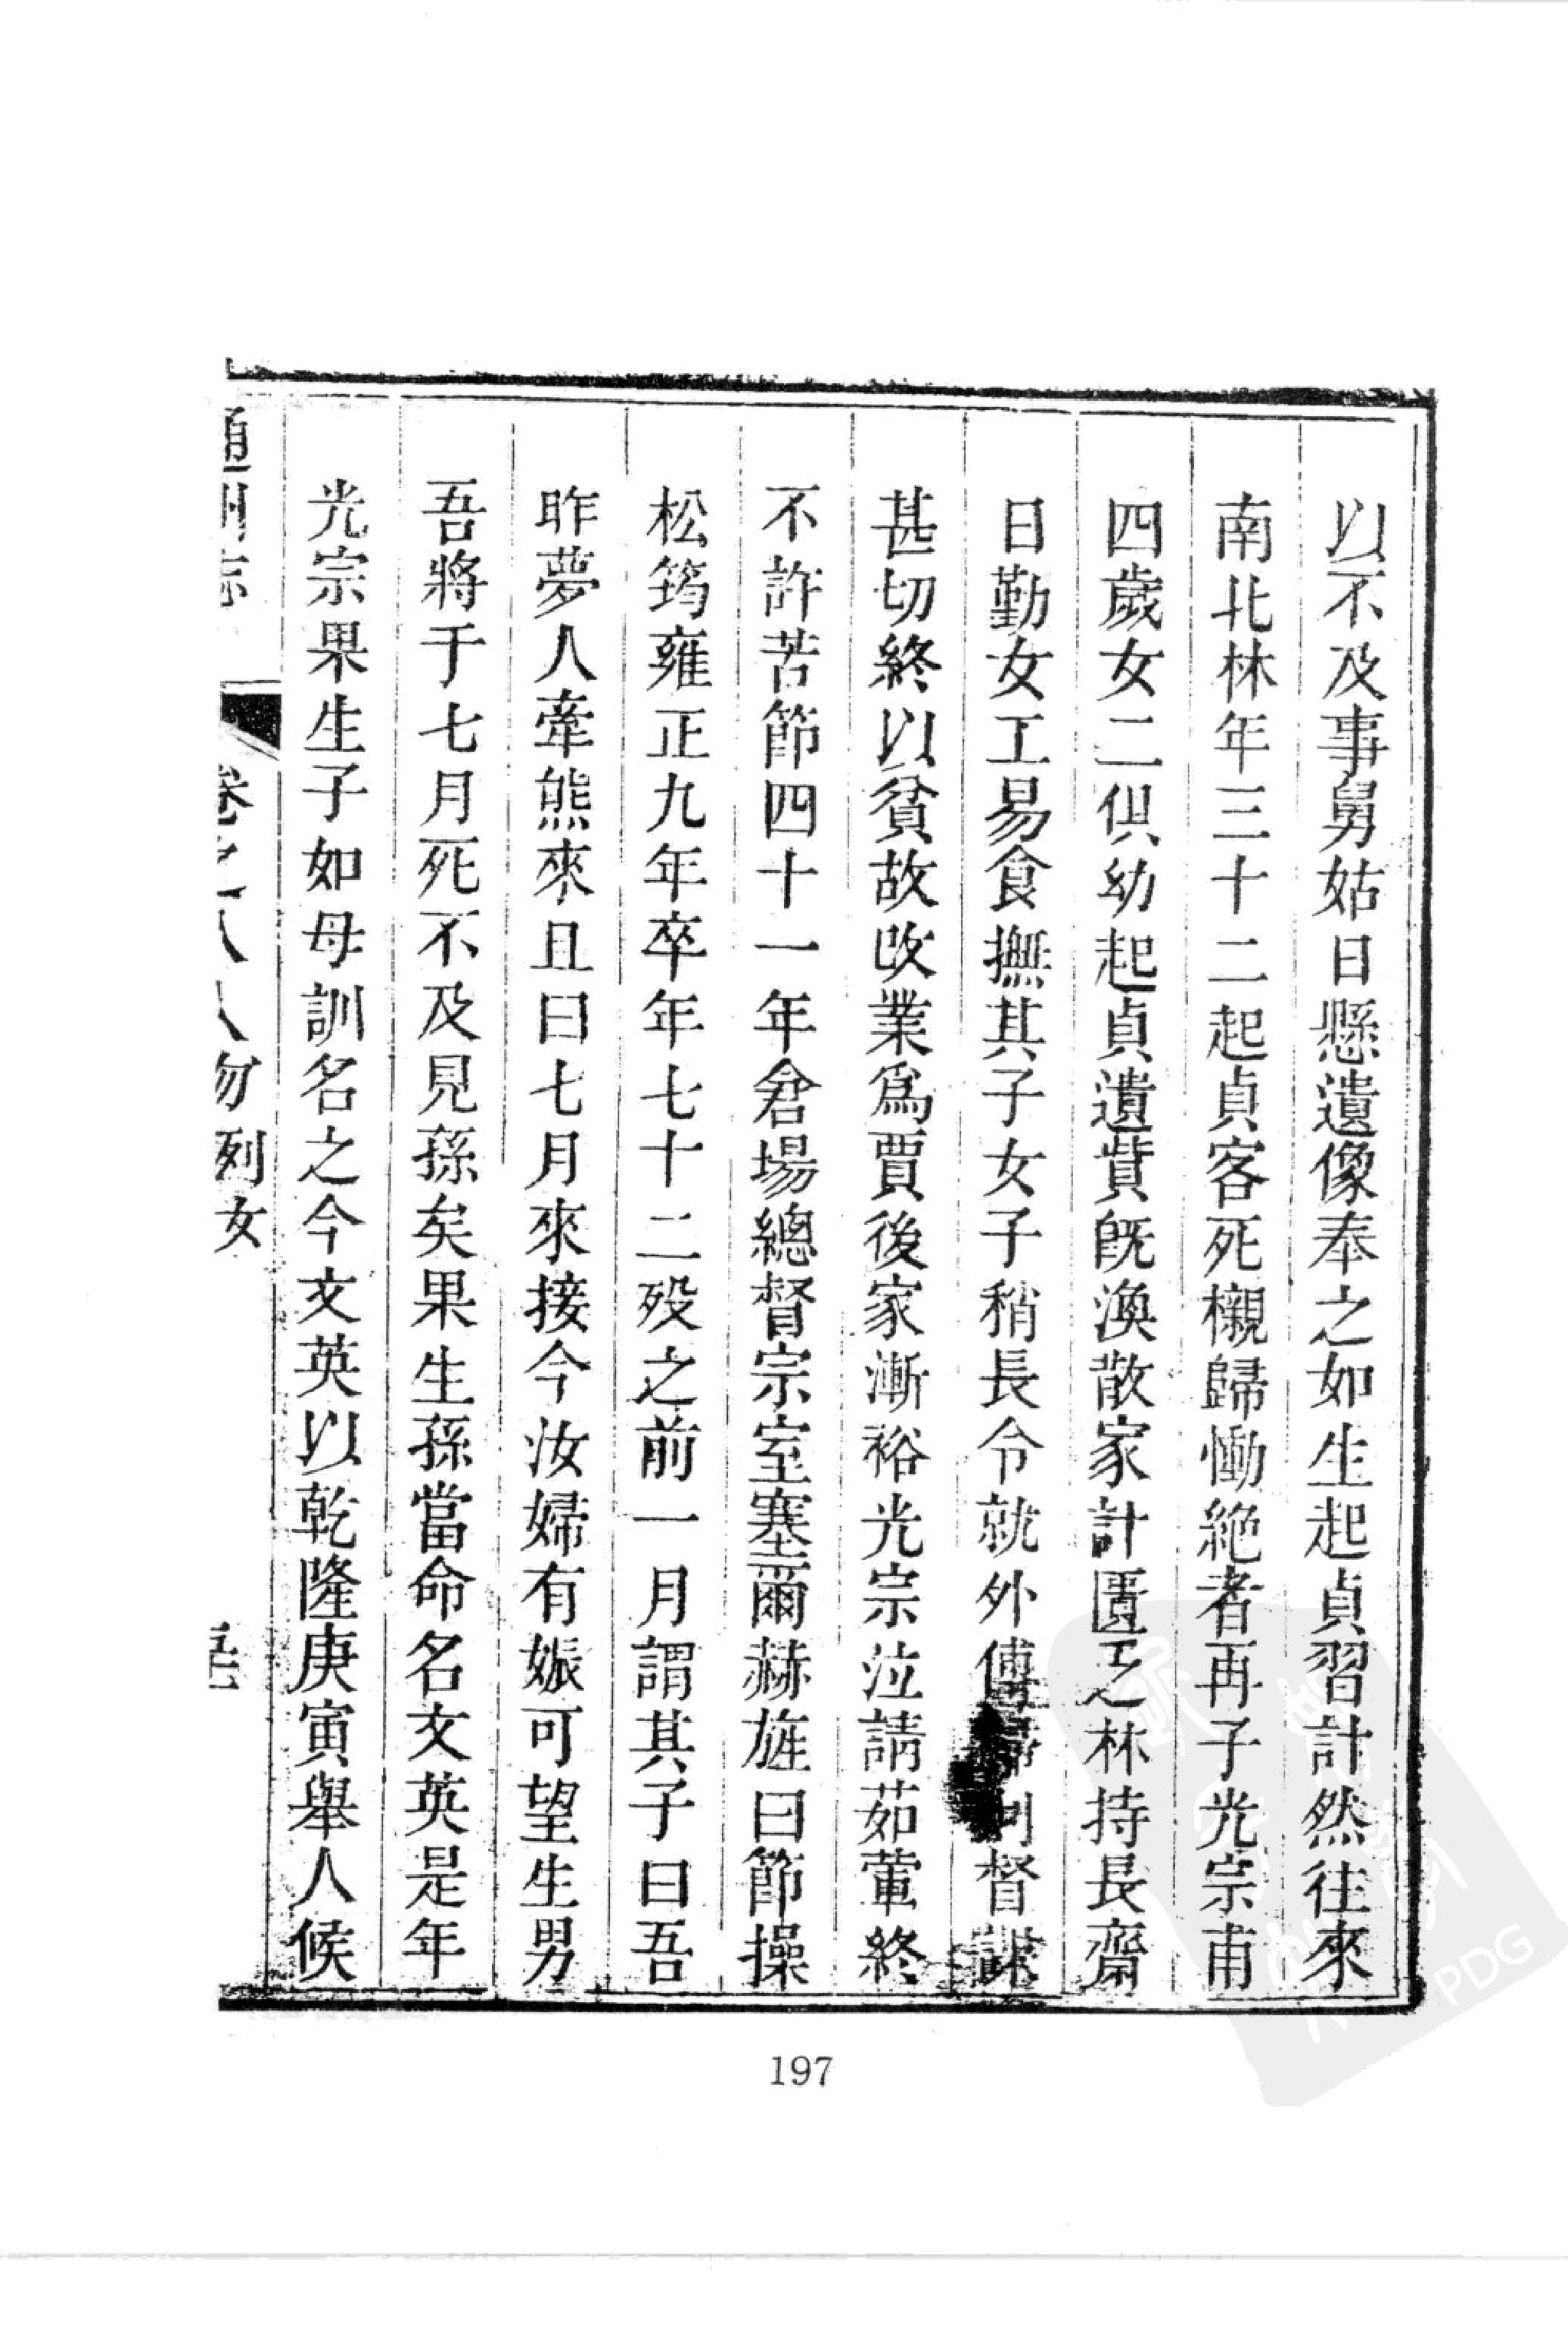 以不及事舅姑日懸遺像奉之如生起貞習計然往來
南北林年三十二起貞客死櫬歸慟絶者再子光宗甫
四歲女二俱幼起貞遺貲旣渙散家計匱乏林持長齋
日勤女工易食撫其子女子稍長令就外傅歸則督課
甚切終以貧故改業爲賈後家漸裕光宗泣請茹葷終
不許苦節四十一年倉場總督宗室塞爾赫旌曰節操
松筠雍正九年卒年七十二歿之前一月謂其子曰吾
昨夢人牽熊來且曰七月來接今汝婦有娠可望生男
吾將于七月死不及見孫矣果生孫當命名文英是年
光宗果生子如母訓名之今文英以乾隆庚寅舉人候
通州志 卷之八 人物 列女
197